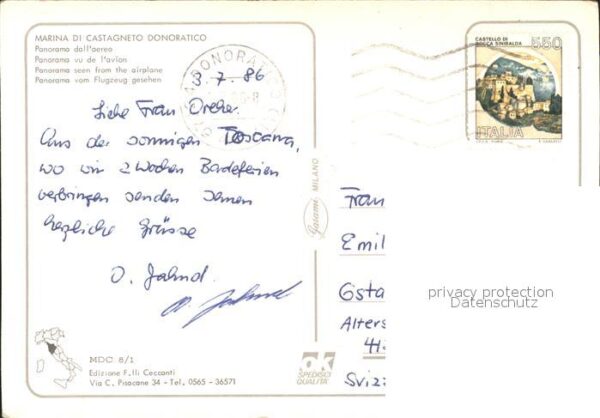 MARINA DI CASTAGNETO DONORATICO
Panorama dall'aereo
Panorama vu de l'avion
Panorama seen from the airplane
Panorama vom Flugzeug gesehen
3.7.86
Liebe Frau Dreher
Aus der sonnigen Toscana,
wo wir 2 Wochen Badeferien
verbringen senden Ihnen
herzliche Grüsse
O. Jahnd.
CASTELLO DI
ROCCA SINIBALDA
550
ITALIA
Garami MILANO
Frau
Emil
Gsta
Alters
Sviz
privacy protection
Datenschutz
MDC 8/1
Edizione F.lli Ceccanti
Via C. Pisacane 34 - Tel. 0565 - 36571
ok
SPEDISCI
QUALITA'